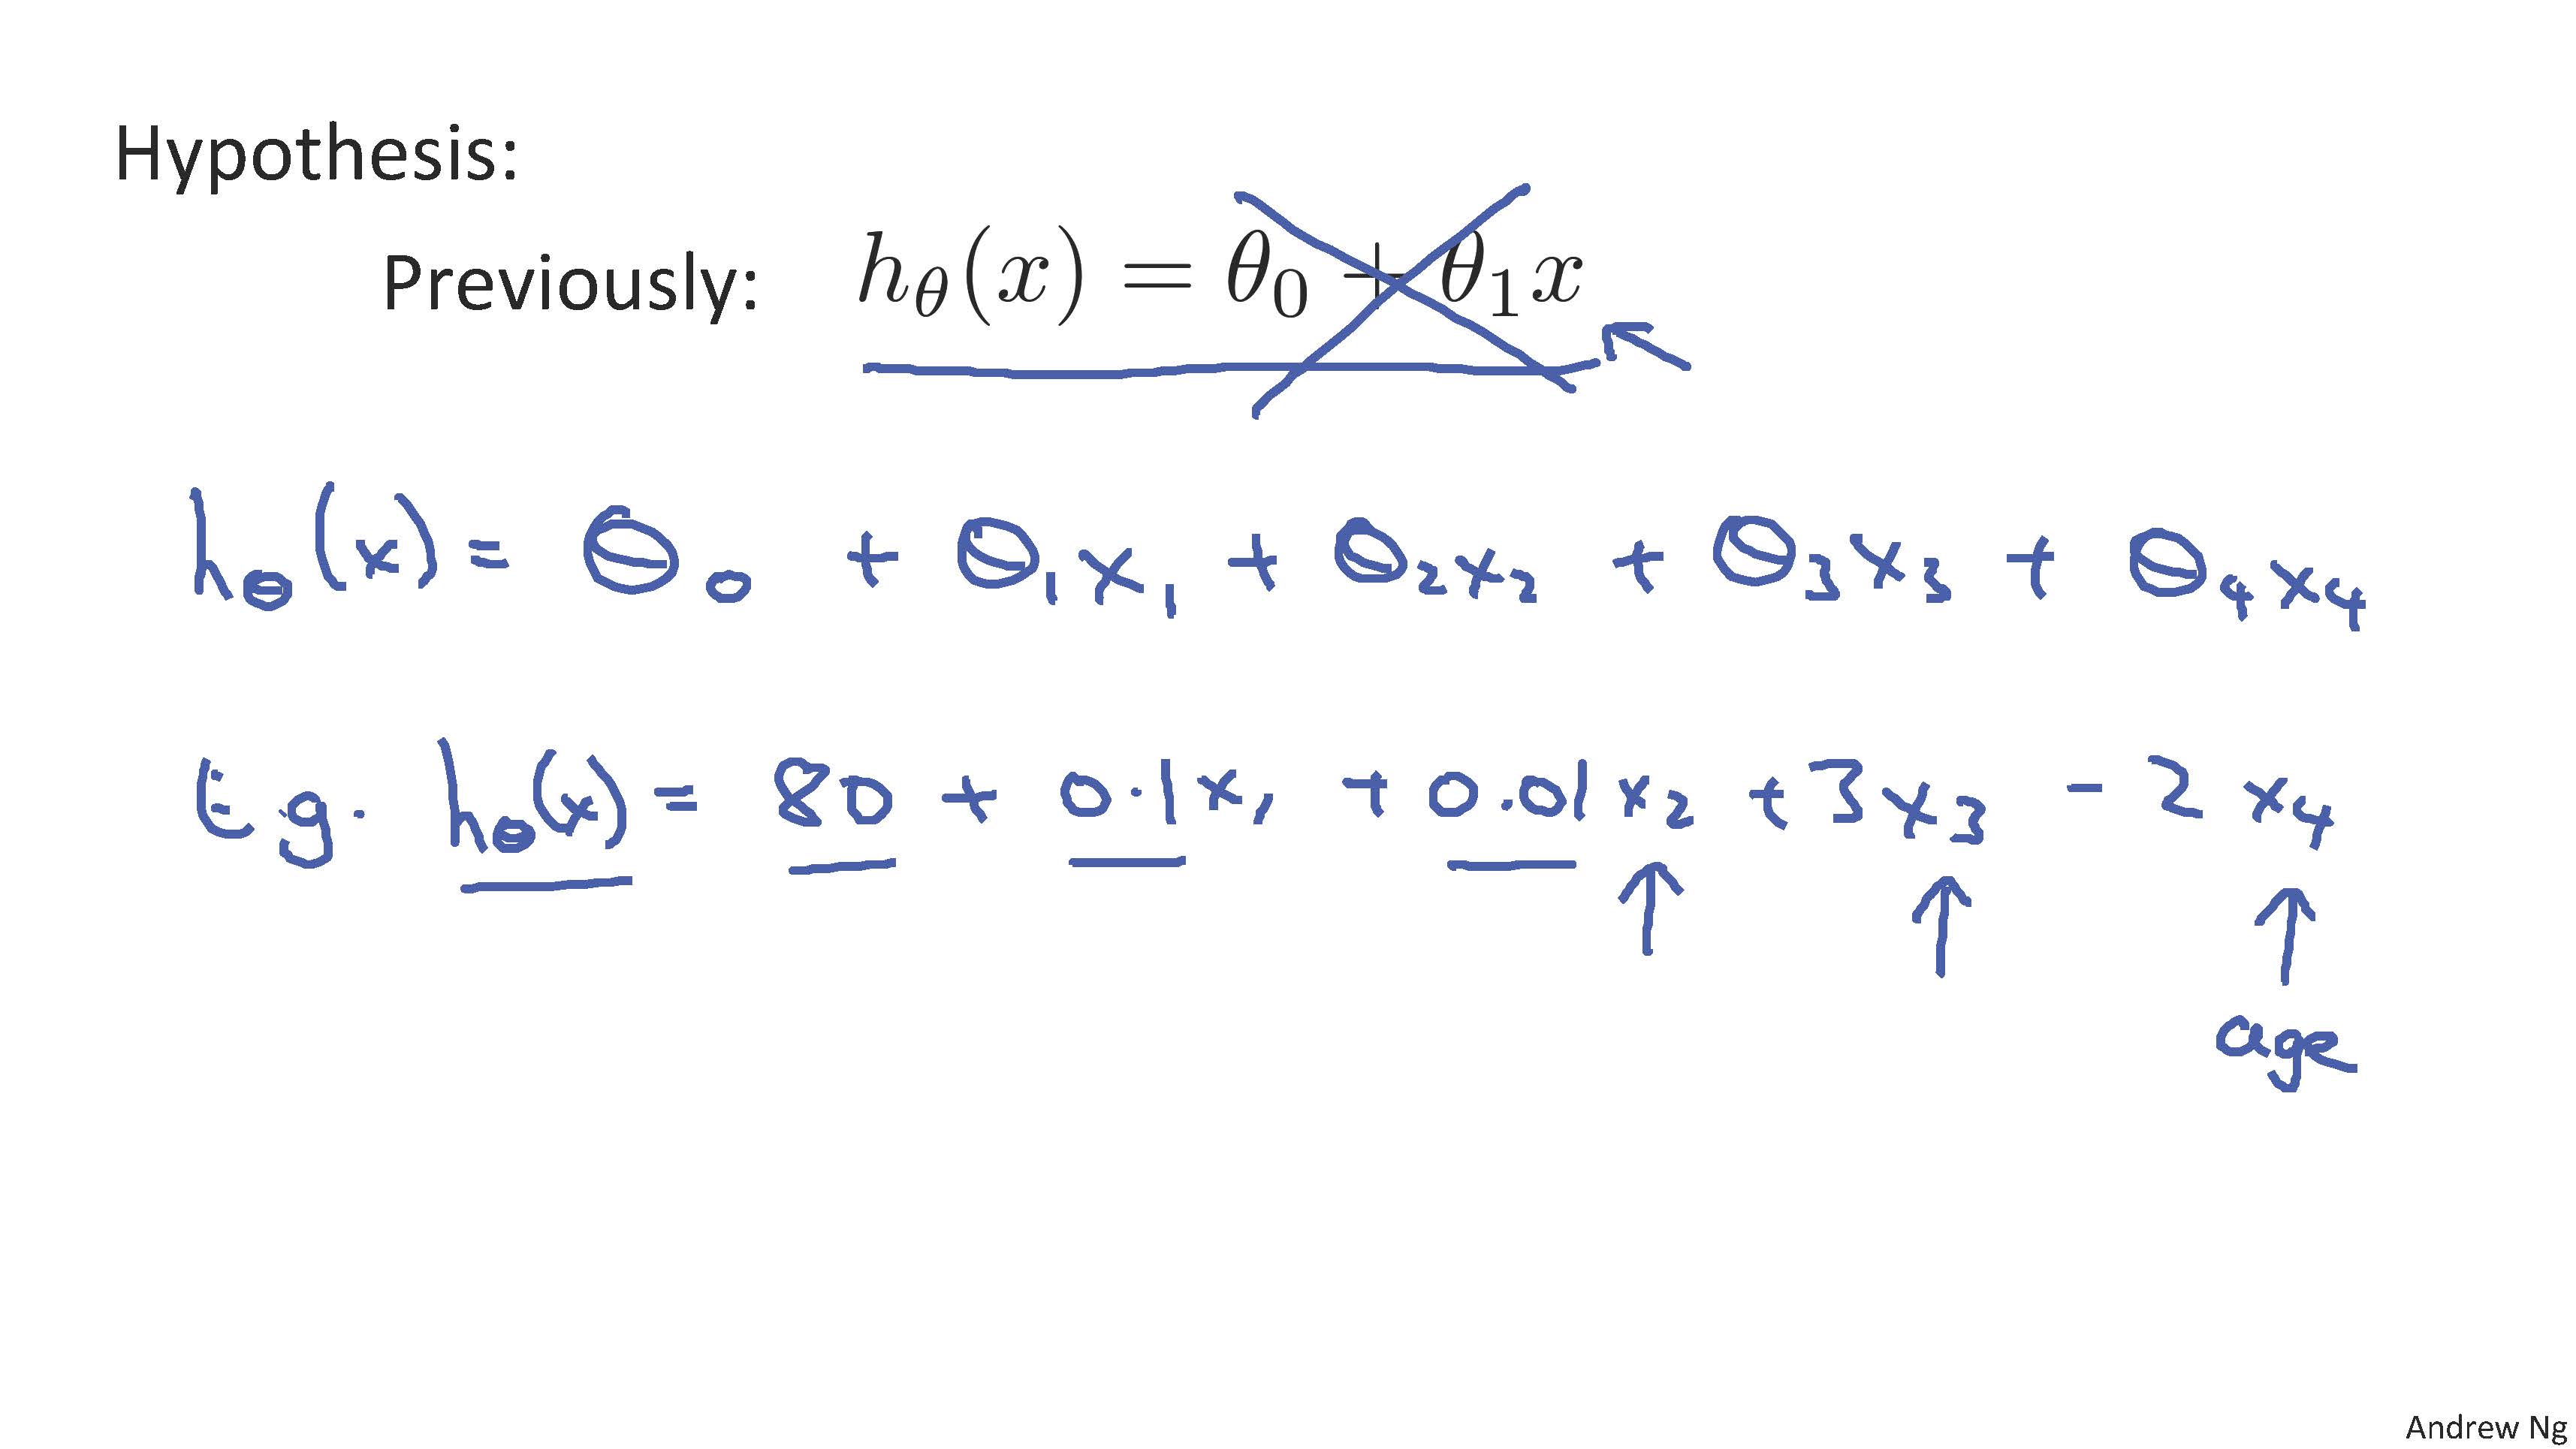 Hypothesis:
Previously: hθ(x) = θ₀ + θ₁x
hθ(x) = θ₀ + θ₁x₁ + θ₂x₂ + θ₃x₃ + θ₄x₄
E.g. hθ(x) = 80 + 0.1x₁ + 0.01x₂ + 3x₃ - 2x₄
age
Andrew Ng